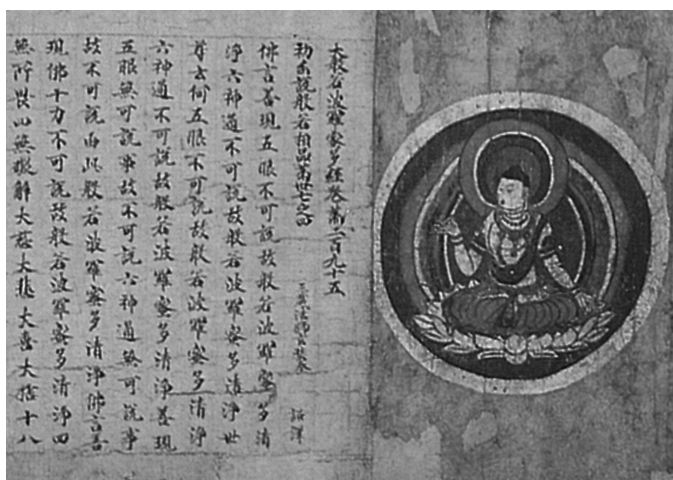 大般若波羅蜜多經卷第二百九十五
初分說般若相品第卅七之四
三藏法師玄奘奉 詔譯
佛言善現五眼不可說故般若波羅蜜多清
淨六神通不可說故般若波羅蜜多清淨世
尊云何五眼不可說故般若波羅蜜多清淨
六神通不可說故般若波羅蜜多清淨善現
五眼無可說事故不可說六神通無可說事
故不可說由此般若波羅蜜多清淨佛言善
現佛十力不可說故般若波羅蜜多清淨四
無所畏四無礙解大慈大悲大喜大捨十八